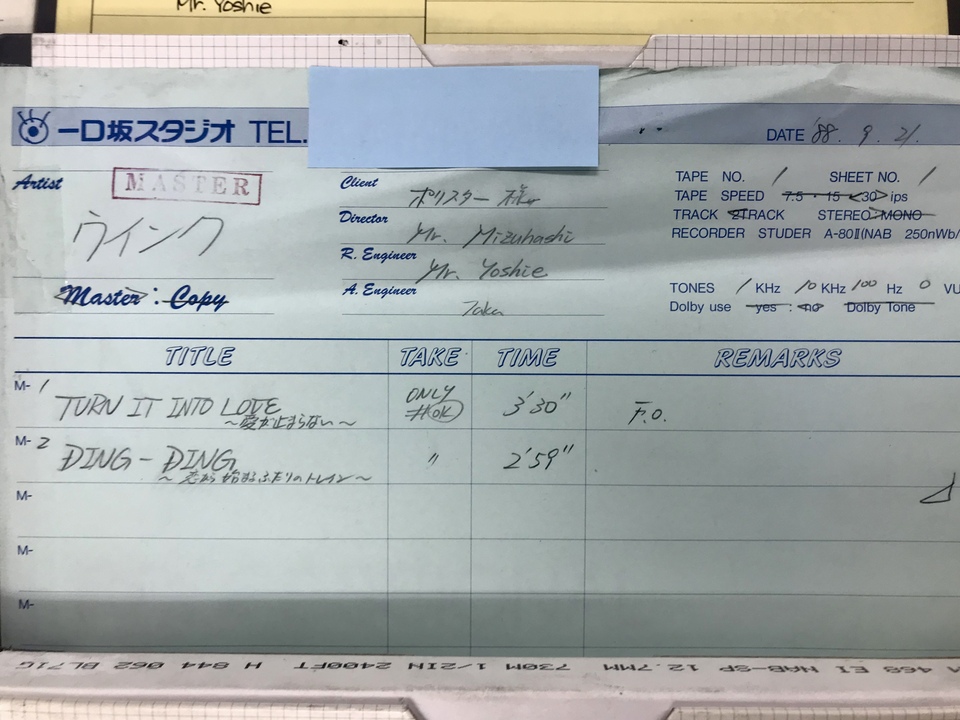 Mr. Yoshie
一口坂スタジオ TEL.
DATE '88. 9. 21.
Artist
MASTER
ウインク
Master : Copy
Client ポリスター 様
Director Mr. Mizuhashi
R. Engineer Mr. Yoshie
A. Engineer Taka
TAPE NO. 1 SHEET NO. 1
TAPE SPEED 7.5 · 15 · 30 ips
TRACK 2TRACK STEREO · MONO
RECORDER STUDER A-80II(NAB 250nWb/
TONES 1 KHz 10 KHz 100 Hz 0 VU
Dolby use yes : no Dolby Tone
TITLE TAKE TIME REMARKS
M- 1 TURN IT INTO LOVE ONLY OK 3'30" F.O.
~愛が止まらない~
M- 2 DING-DING 〃 2'59"
~恋から始まるふたりのトレイン~
M-
M-
M-
A 468 EI NAB-SP 12.7MM 730M 1/2IN 2400FT H 844 062 BL71G